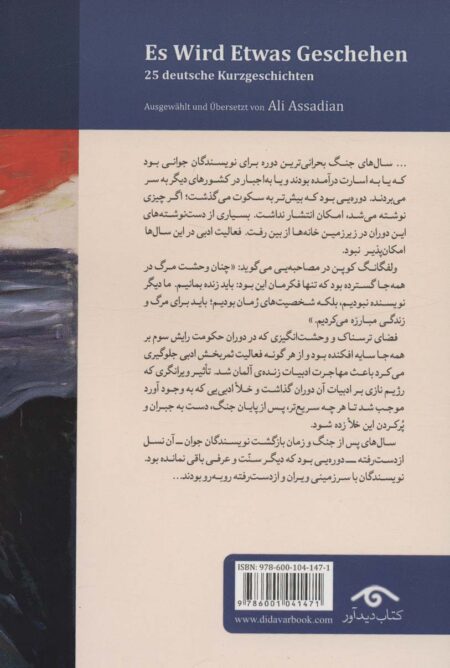 Es Wird Etwas Geschehen
25 deutsche Kurzgeschichten
Ausgewählt und Übersetzt von Ali Assadian
... سال‌های جنگ بحرانی‌ترین دوره برای نویسندگان جوانی بود
که یا به اسارت درآمده بودند و یا به‌اجبار در کشورهای دیگر به سر
می‌بردند. دوره‌یی بود که بیش‌تر به سکوت می‌گذشت؛ اگر چیزی
نوشته می‌شد، امکان انتشار نداشت. بسیاری از دست‌نوشته‌های
این دوران در زیرزمین خانه‌ها از بین رفت. فعالیت ادبی در این سال‌ها
امکان‌پذیر نبود.
ولفگانگ کوپن در مصاحبه‌یی می‌گوید: «چنان وحشت مرگ در
همه‌جا گسترده بود که تنها فکرمان این بود: باید زنده بمانیم. ما دیگر
نویسنده نبودیم، بلکه شخصیت‌های رُمان بودیم؛ باید برای مرگ و
زندگی مبارزه می‌کردیم.»
فضای ترسناک و وحشت‌انگیزی که در دوران حکومت رایش سوم بر
همه‌جا سایه افکنده بود و از هرگونه فعالیت ثمربخش ادبی جلوگیری
می‌کرد باعث مهاجرت ادبیات زنده‌ی آلمان شد. تأثیر ویرانگری که
رژیم نازی بر ادبیات آن دوران گذاشت و خلأ ادبی‌یی که به وجود آورد
موجب شد تا هر چه سریع‌تر، پس از پایان جنگ، دست به جبران و
پُرکردن این خلأ زده شود.
سال‌های پس از جنگ و زمان بازگشت نویسندگان جوان ــ آن نسل
ازدست‌رفته ــ دوره‌یی بود که دیگر سنّت و عرفی باقی نمانده بود.
نویسندگان با سرزمینی ویران و ازدست‌رفته روبه‌رو بودند...
ISBN: 978-600-104-147-1
9 786001 041471
www.didavarbook.com
کتاب دیدآور